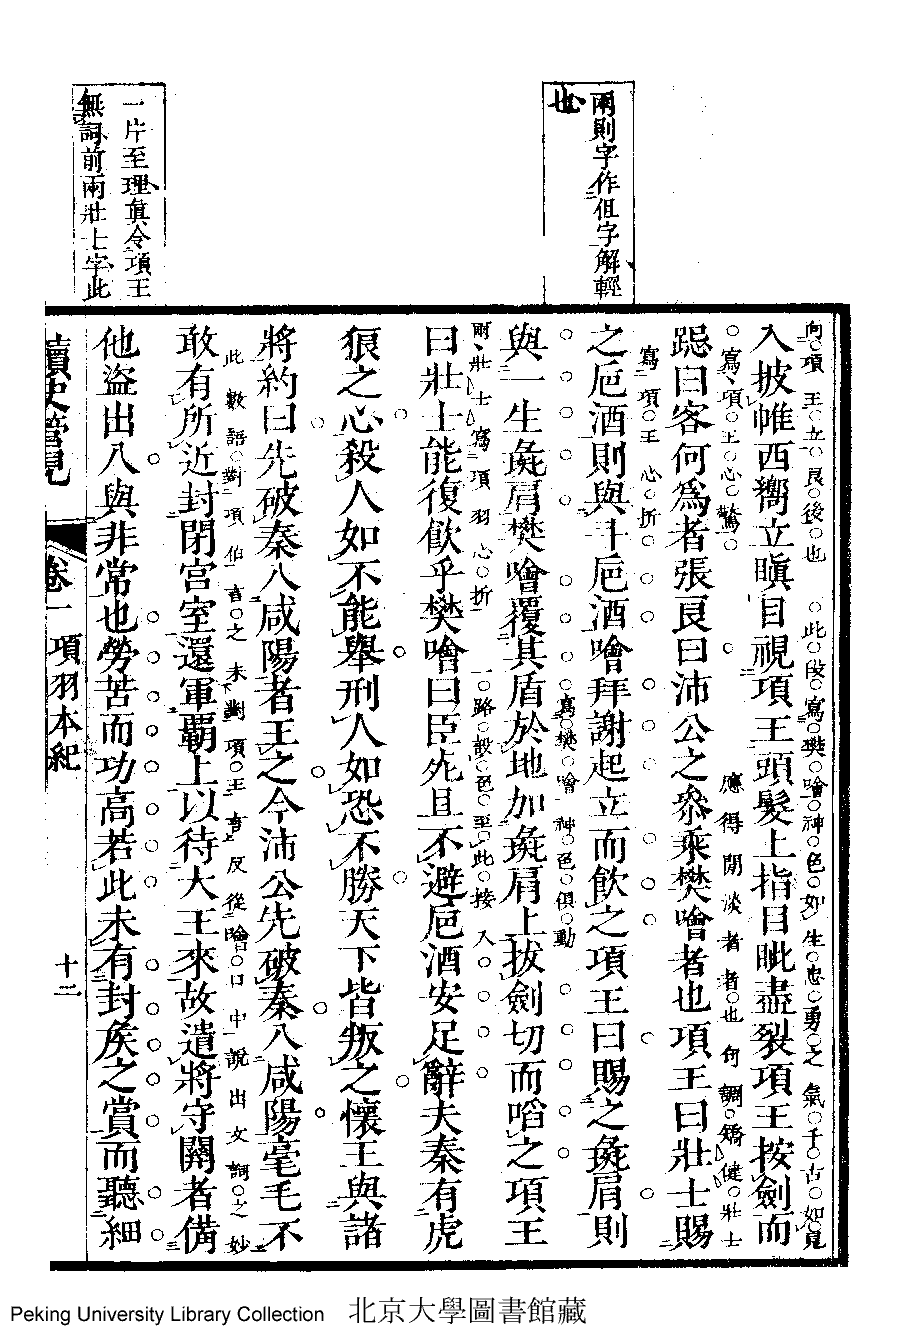 兩則字作但字解輕
也
一片至理真令項王
無詞前兩壯士字此
向項王立良後也　此段寫樊噲神色如生忠勇之氣千古如見
入披帷西嚮立瞋目視項王頭髮上指目眦盡裂項王按劍而
寫項王心驚　應得閒淡者者也何調矯健壯士
跽曰客何爲者張良曰沛公之參乘樊噲者也項王曰壯士賜
寫項王心折
之巵酒則與斗巵酒噲拜謝起立而飮之項王曰賜之彘肩則
寫樊噲神色俱動
與一生彘肩樊噲覆其盾於地加彘肩上拔劍切而啗之項王
兩壯士寫項羽心折　一路設色至此接入
曰壯士能復飮乎樊噲曰臣死且不避巵酒安足辭夫秦有虎
狼之心殺人如不能舉刑人如恐不勝天下皆叛之懷王與諸
將約曰先破秦入咸陽者王之今沛公先破秦入咸陽毫毛不
此數語對項伯言之未對項王言反從噲口中說出文詞之妙
敢有所近封閉宫室還軍霸上以待大王來故遣將守關者備
他盜出入與非常也勞苦而功高若此未有封矦之賞而聽細
讀史管見
卷一　項羽本紀
十二
Peking University Library Collection　北京大學圖書館藏